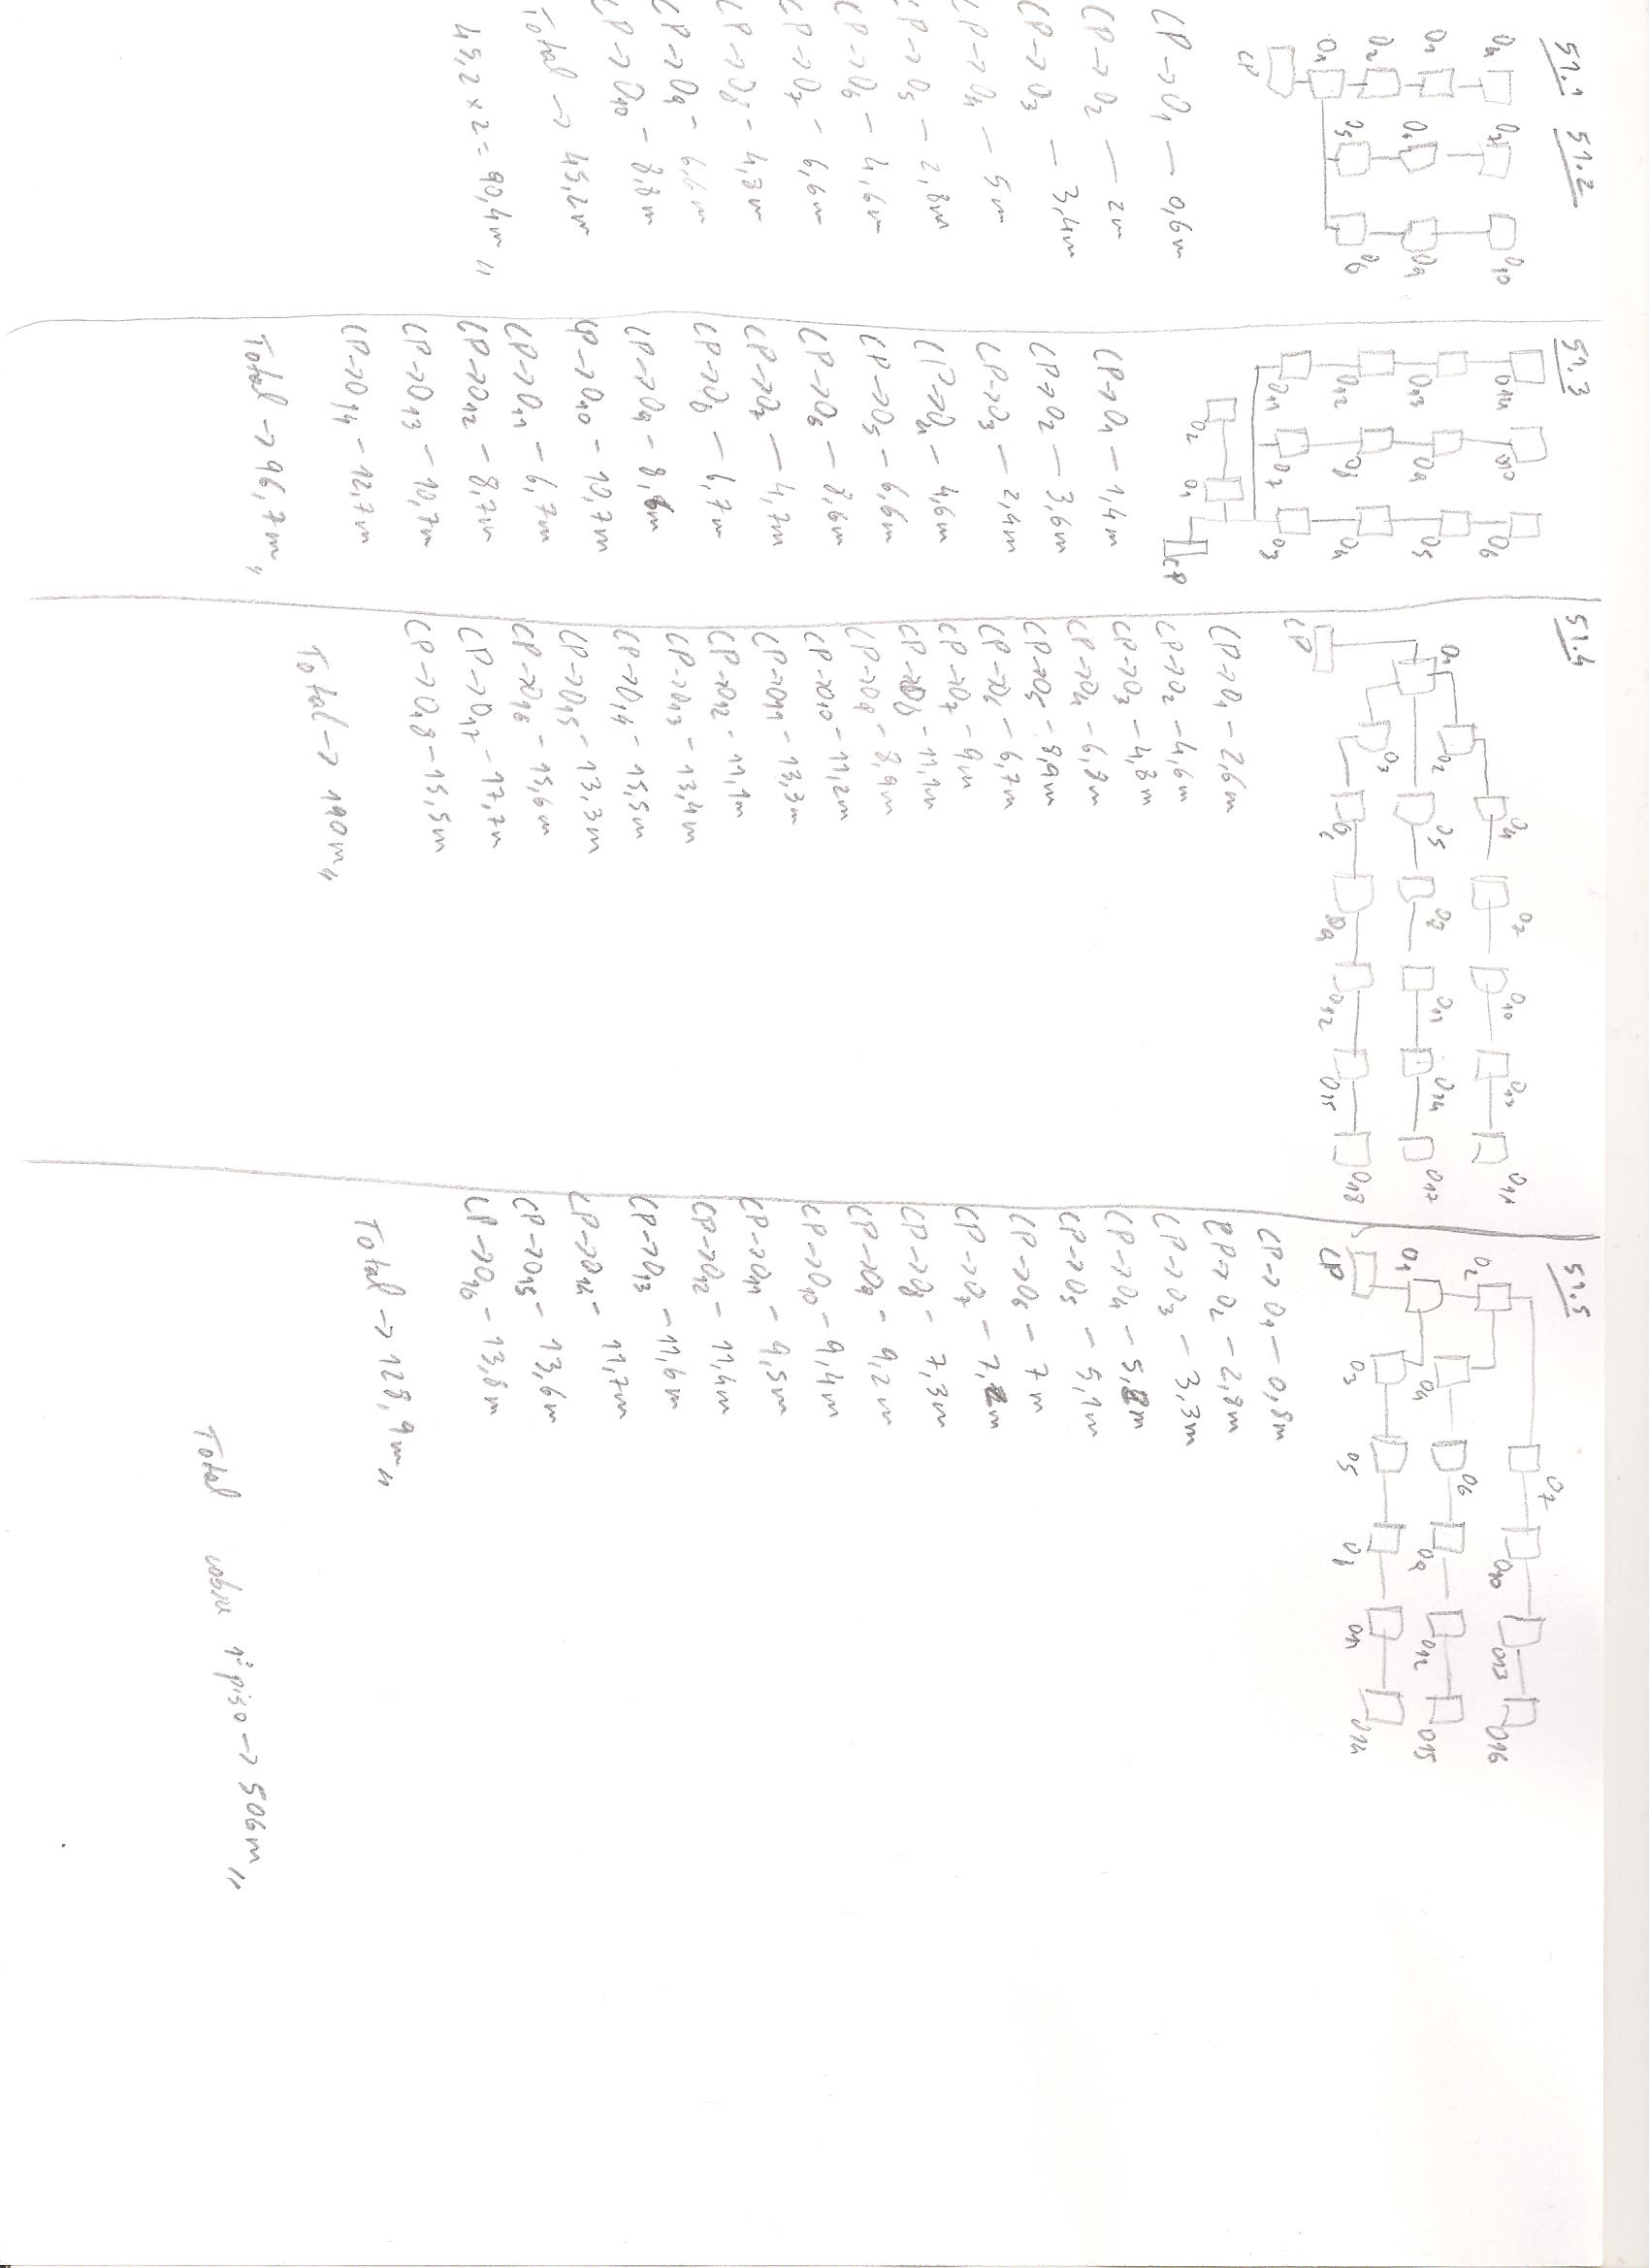 51.1 51.2
O4 O7 O10
O3 O6 O9
O2 O5 O8
O1
CP
CP → O1 — 0,6m
CP → O2 — 2m
CP → O3 — 3,4m
CP → O4 — 5m
CP → O5 — 2,8m
CP → O6 — 4,6m
CP → O7 — 6,6m
CP → O8 — 4,8m
CP → O9 — 6,6m
CP → O10 — 8,8m
Total → 45,2m
45,2 x 2 = 90,4m //
51.3
O14 O10 O6
O13 O9 O5
O12 O8 O4
O11 O7 O3
O2 O1
CP
CP → O1 — 1,4m
CP → O2 — 3,6m
CP → O3 — 2,4m
CP → O4 — 4,6m
CP → O5 — 6,6m
CP → O6 — 8,6m
CP → O7 — 4,7m
CP → O8 — 6,7m
CP → O9 — 8,6m
CP → O10 — 10,7m
CP → O11 — 6,7m
CP → O12 — 8,7m
CP → O13 — 10,7m
CP → O14 — 12,7m
Total → 96,7m //
51.4
O4 O7 O10 O13
O1 O2 O5 O8 O11 O14 O17
O3
O6 O9 O12 O15 O18
CP
CP → O1 — 2,6m
CP → O2 — 4,6m
CP → O3 — 4,8m
CP → O4 — 6,8m
CP → O5 — 8,9m
CP → O6 — 6,7m
CP → O7 — 9m
CP → O8 — 11,1m
CP → O9 — 8,9m
CP → O10 — 11,2m
CP → O11 — 13,3m
CP → O12 — 11,1m
CP → O13 — 13,4m
CP → O14 — 15,5m
CP → O15 — 13,3m
CP → O16 — 15,6m
CP → O17 — 17,7m
CP → O18 — 15,5m
Total → 190m //
51.5
O7 O10 O13 O16
O2 O4 O6 O9 O12 O15
O1 O3 O5 O8 O11 O14
CP
CP → O1 — 0,8m
CP → O2 — 2,8m
CP → O3 — 3,3m
CP → O4 — 5,2m
CP → O5 — 5,1m
CP → O6 — 7m
CP → O7 — 7,2m
CP → O8 — 7,3m
CP → O9 — 9,2m
CP → O10 — 9,4m
CP → O11 — 9,5m
CP → O12 — 11,4m
CP → O13 — 11,6m
CP → O14 — 11,7m
CP → O15 — 13,6m
CP → O16 — 13,8m
Total → 128,9m //
Total cobre 1º piso → 506m //